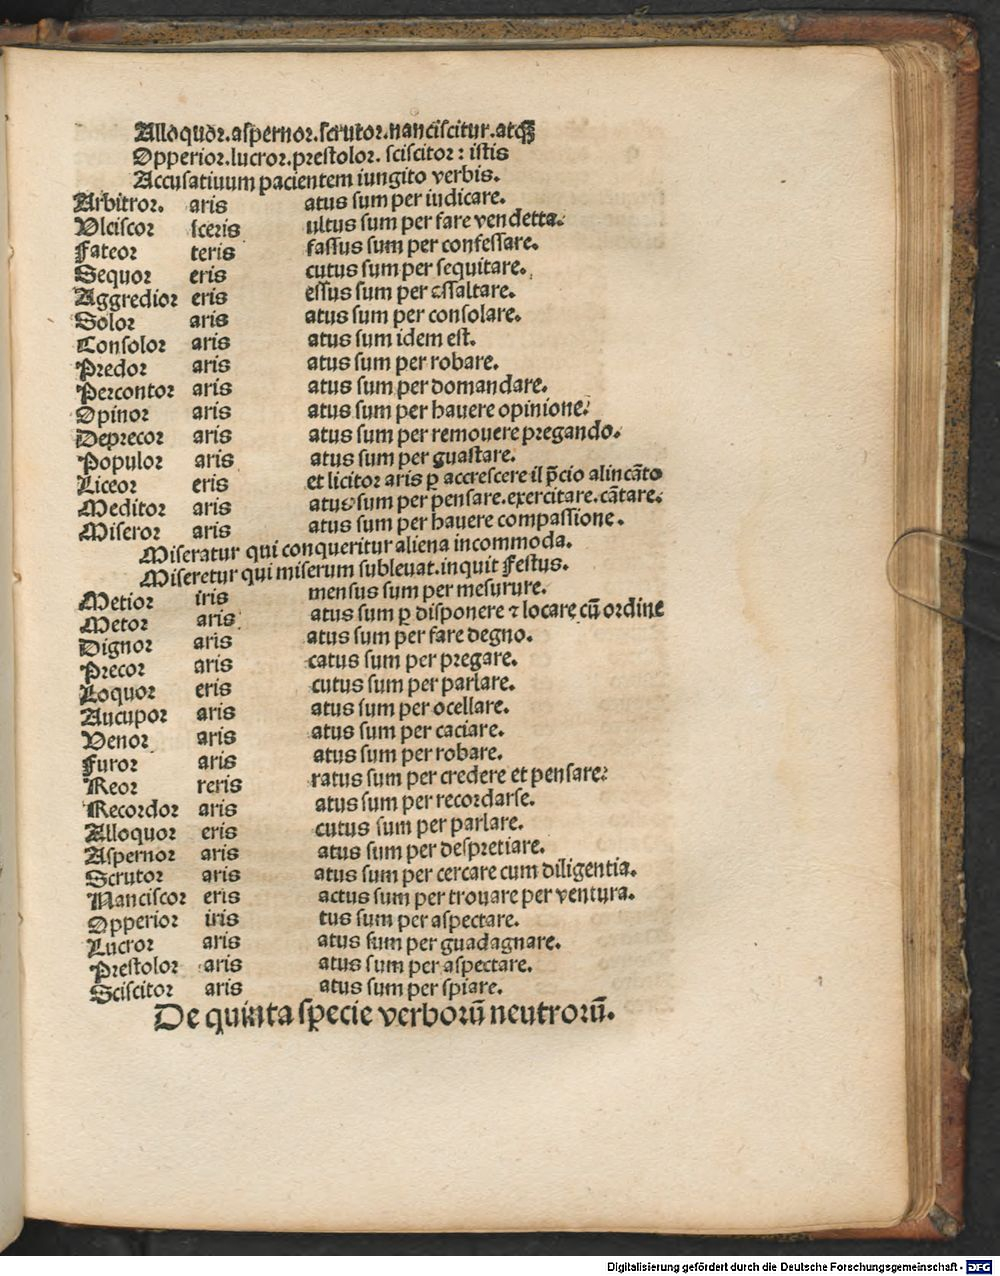 Alloquor.aspernor.scrutor.nanciscitur.atq3
Opperior.lucror.prestolor. sciscitor: istis
Accusatiuum pacientem iungito verbis.
Arbitror. aris atus sum per iudicare.
Vlciscor sceris ultus sum per fare vendetta.
Fateor teris fassus sum per confessare.
Sequor eris cutus sum per sequitare.
Aggredior eris essus sum per assaltare.
Solor aris atus sum per consolare.
Consolor aris atus sum idem est.
Predor aris atus sum per robare.
Percontor aris atus sum per domandare.
Opinor aris atus sum per hauere opinione.
Deprecor aris atus sum per remouere pregando.
Populor aris atus sum per guastare.
Liceor eris et licitor aris p̱ accrescere il p̄cio alincāto
Meditor aris atus sum per pensare.exercitare.cātare.
Miseror aris atus sum per hauere compassione.
Miseratur qui conqueritur aliena incommoda.
Miseretur qui miserum subleuat.inquit Festus.
Metior iris mensus sum per mesurure.
Metor aris atus sum p̱ disponere ⁊ locare cū ordine
Dignor aris atus sum per fare degno.
Precor aris catus sum per pregare.
Loquor eris cutus sum per parlare.
Aucupor aris atus sum per ocellare.
Venor aris atus sum per caciare.
Furor aris atus sum per robare.
Reor reris ratus sum per credere et pensare.
Recordor aris atus sum per recordarse.
Alloquor eris cutus sum per parlare.
Aspernor aris atus sum per despretiare.
Scrutor aris atus sum per cercare cum diligentia.
Nanciscor eris actus sum per trouare per ventura.
Opperior iris tus sum per aspectare.
Lucror aris atus sum per guadagnare.
Prestolor aris atus sum per aspectare.
Sciscitor aris atus sum per spiare.
De quinta specie verborū neutrorū.
Digitalisierung gefördert durch die Deutsche Forschungsgemeinschaft - DFG